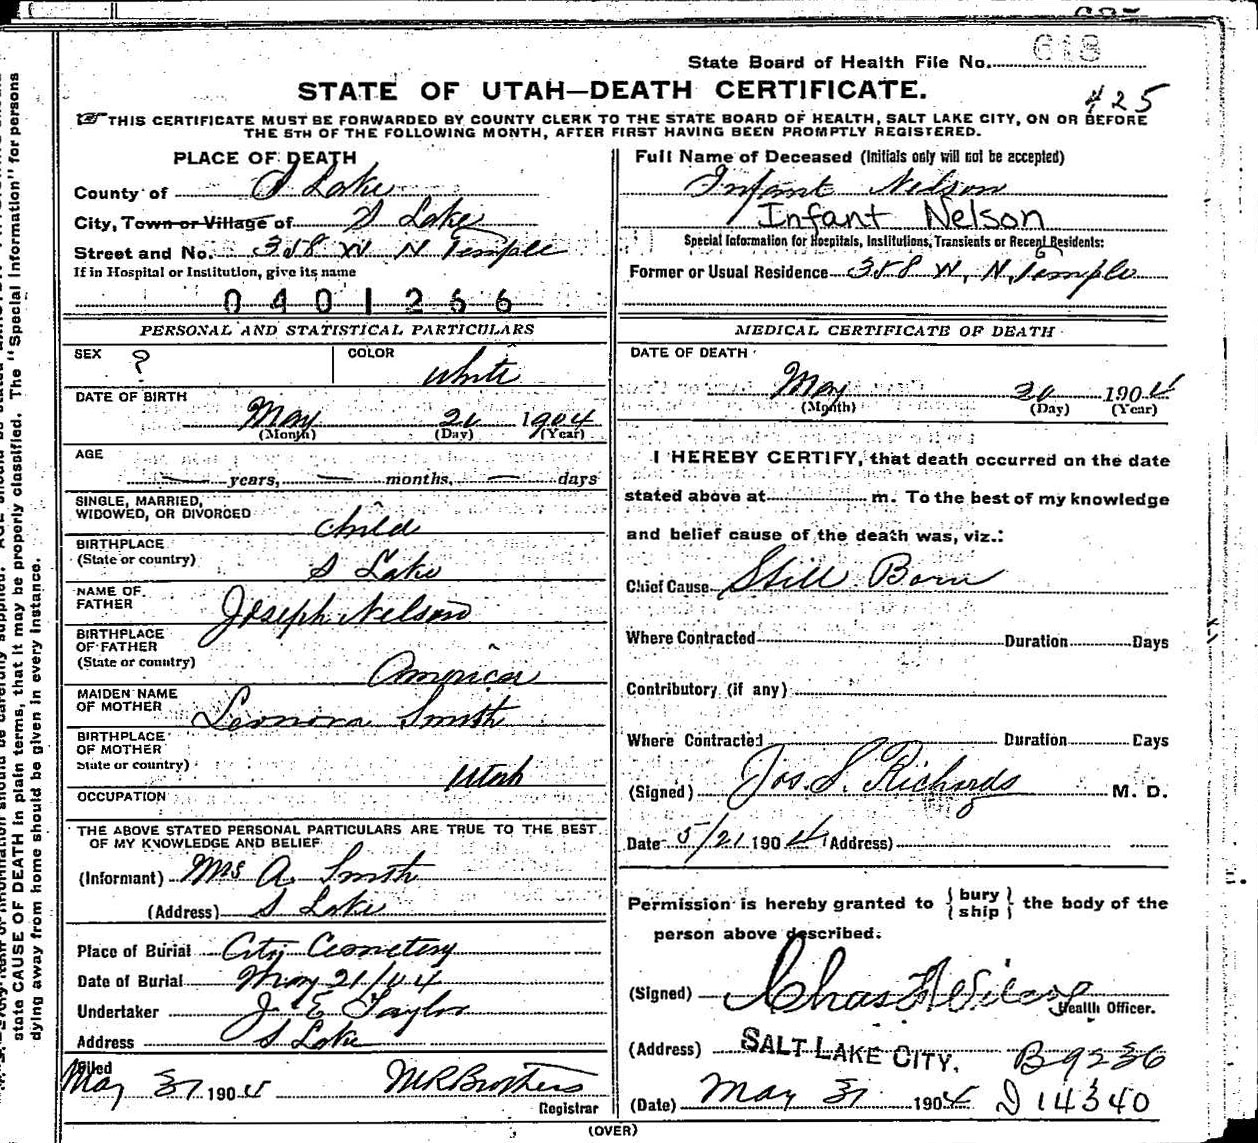 618
State Board of Health File No.
STATE OF UTAH—DEATH CERTIFICATE.
425
THIS CERTIFICATE MUST BE FORWARDED BY COUNTY CLERK TO THE STATE BOARD OF HEALTH, SALT LAKE CITY, ON OR BEFORE
THE 5TH OF THE FOLLOWING MONTH, AFTER FIRST HAVING BEEN PROMPTLY REGISTERED.
PLACE OF DEATH
County of S Lake
City, Town or Village of S Lake
Street and No. 358 W N Temple
If in Hospital or Institution, give its name
0401266
PERSONAL AND STATISTICAL PARTICULARS
SEX ? COLOR white
DATE OF BIRTH
May 20 1904
(Month) (Day) (Year)
AGE
years, months, days
SINGLE, MARRIED,
WIDOWED, OR DIVORCED child
BIRTHPLACE
(State or country) S Lake
NAME OF
FATHER Joseph Nelson
BIRTHPLACE
OF FATHER
(State or country) America
MAIDEN NAME
OF MOTHER Leonora Smith
BIRTHPLACE
OF MOTHER
State or country) Utah
OCCUPATION
THE ABOVE STATED PERSONAL PARTICULARS ARE TRUE TO THE BEST
OF MY KNOWLEDGE AND BELIEF
(Informant) Mrs A. Smith
(Address) S Lake
Place of Burial City Cemetery
Date of Burial May 21/04
Undertaker J. E Taylor
Address S Lake
Filed
May 31 1904 M R Brothers
Registrar
Full Name of Deceased (Initials only will not be accepted)
Infant Nelson
Infant Nelson
Special Information for Hospitals, Institutions, Transients or Recent Residents:
Former or Usual Residence 358 W. N. Temple
MEDICAL CERTIFICATE OF DEATH
DATE OF DEATH
May 20 1904
(Month) (Day) (Year)
I HEREBY CERTIFY, that death occurred on the date
stated above at m. To the best of my knowledge
and belief cause of the death was, viz.:
Chief Cause Still Born
Where Contracted Duration Days
Contributory (if any)
Where Contracted Duration Days
(Signed) Jos. S. Richards M. D.
Date 5/21 1904 (Address)
Permission is hereby granted to {bury
ship} the body of the
person above described.
(Signed) Chas
Health Officer.
(Address) SALT LAKE CITY. B9236
(Date) May 31 1904 D 14340
(OVER)
state CAUSE OF DEATH in plain terms, that it may be properly classified. The "Special Information" for persons
dying away from home should be given in every instance.